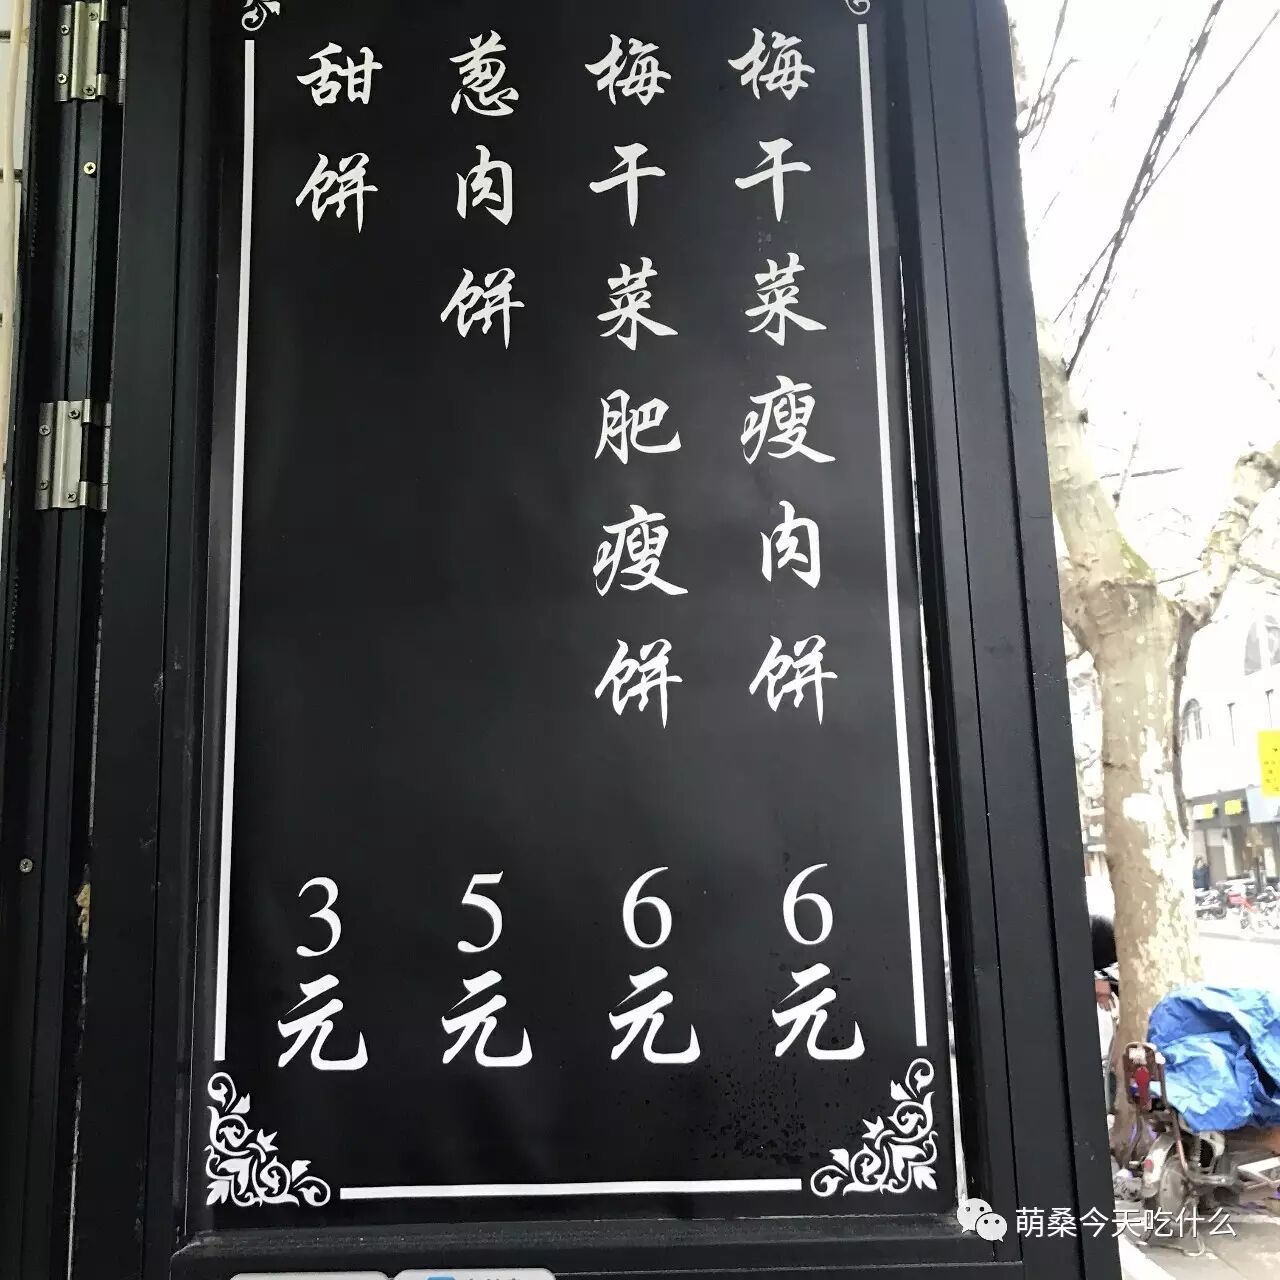 梅干菜瘦肉饼 6元
梅干菜肥瘦饼 6元
葱肉饼 5元
甜饼 3元
萌桑今天吃什么